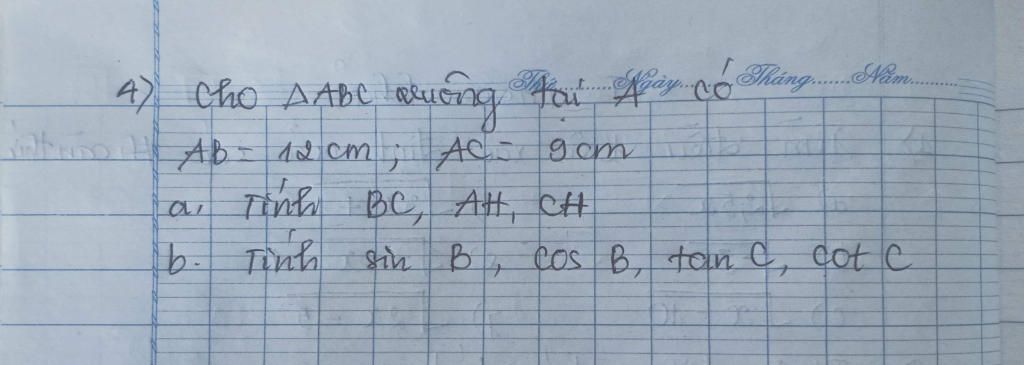 Thứ.........Ngày.......Tháng.......Năm..........
4) Cho △ABC vuông tại A có
AB = 12 cm ; AC = 9 cm
a. Tính BC, AH, CH
b. Tính sin B, cos B, tan C, cot C